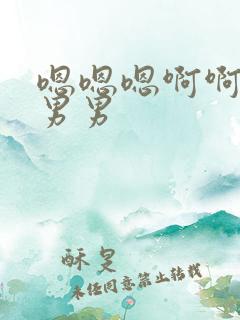 嗯嗯嗯啊啊
男男
酥旻
未经同意禁止转载